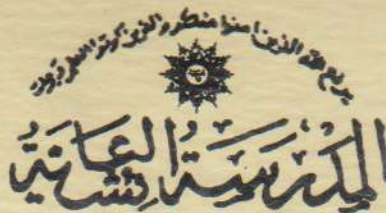 يرفع الله الذين امنوا منكم والذين اوتوا العلم درجات
المدرسة العثمانية